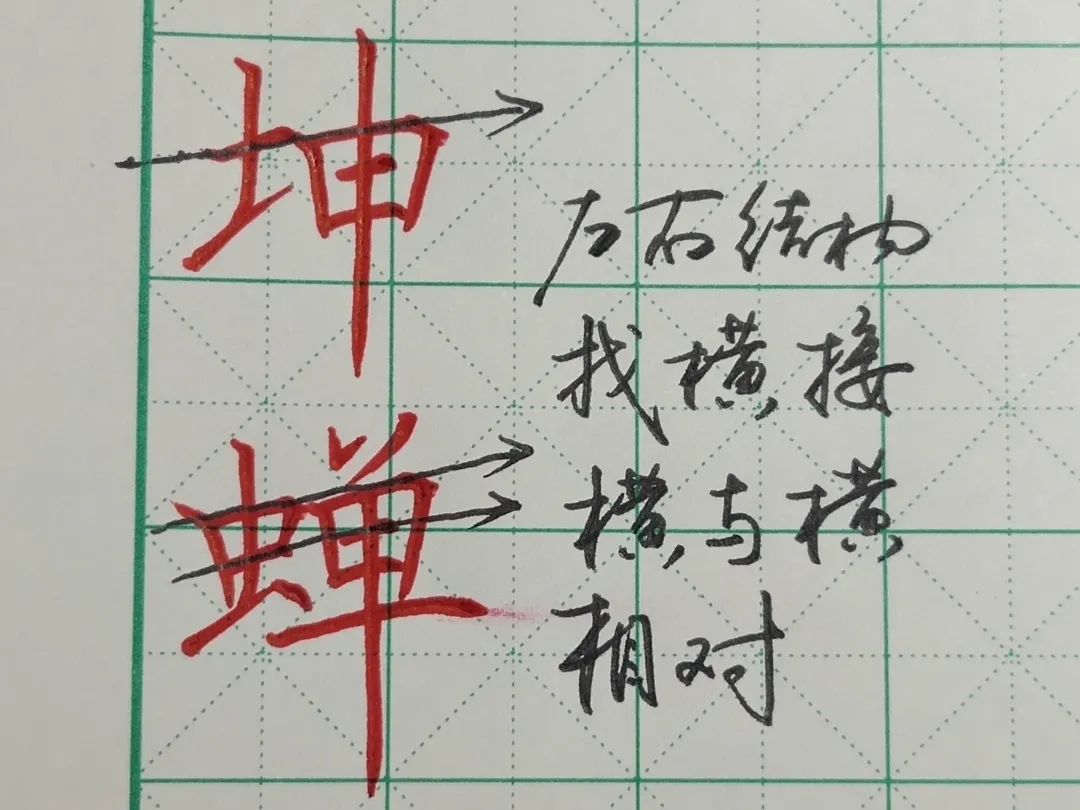 坤
蝉
左右结构
找横接
横与横
相对